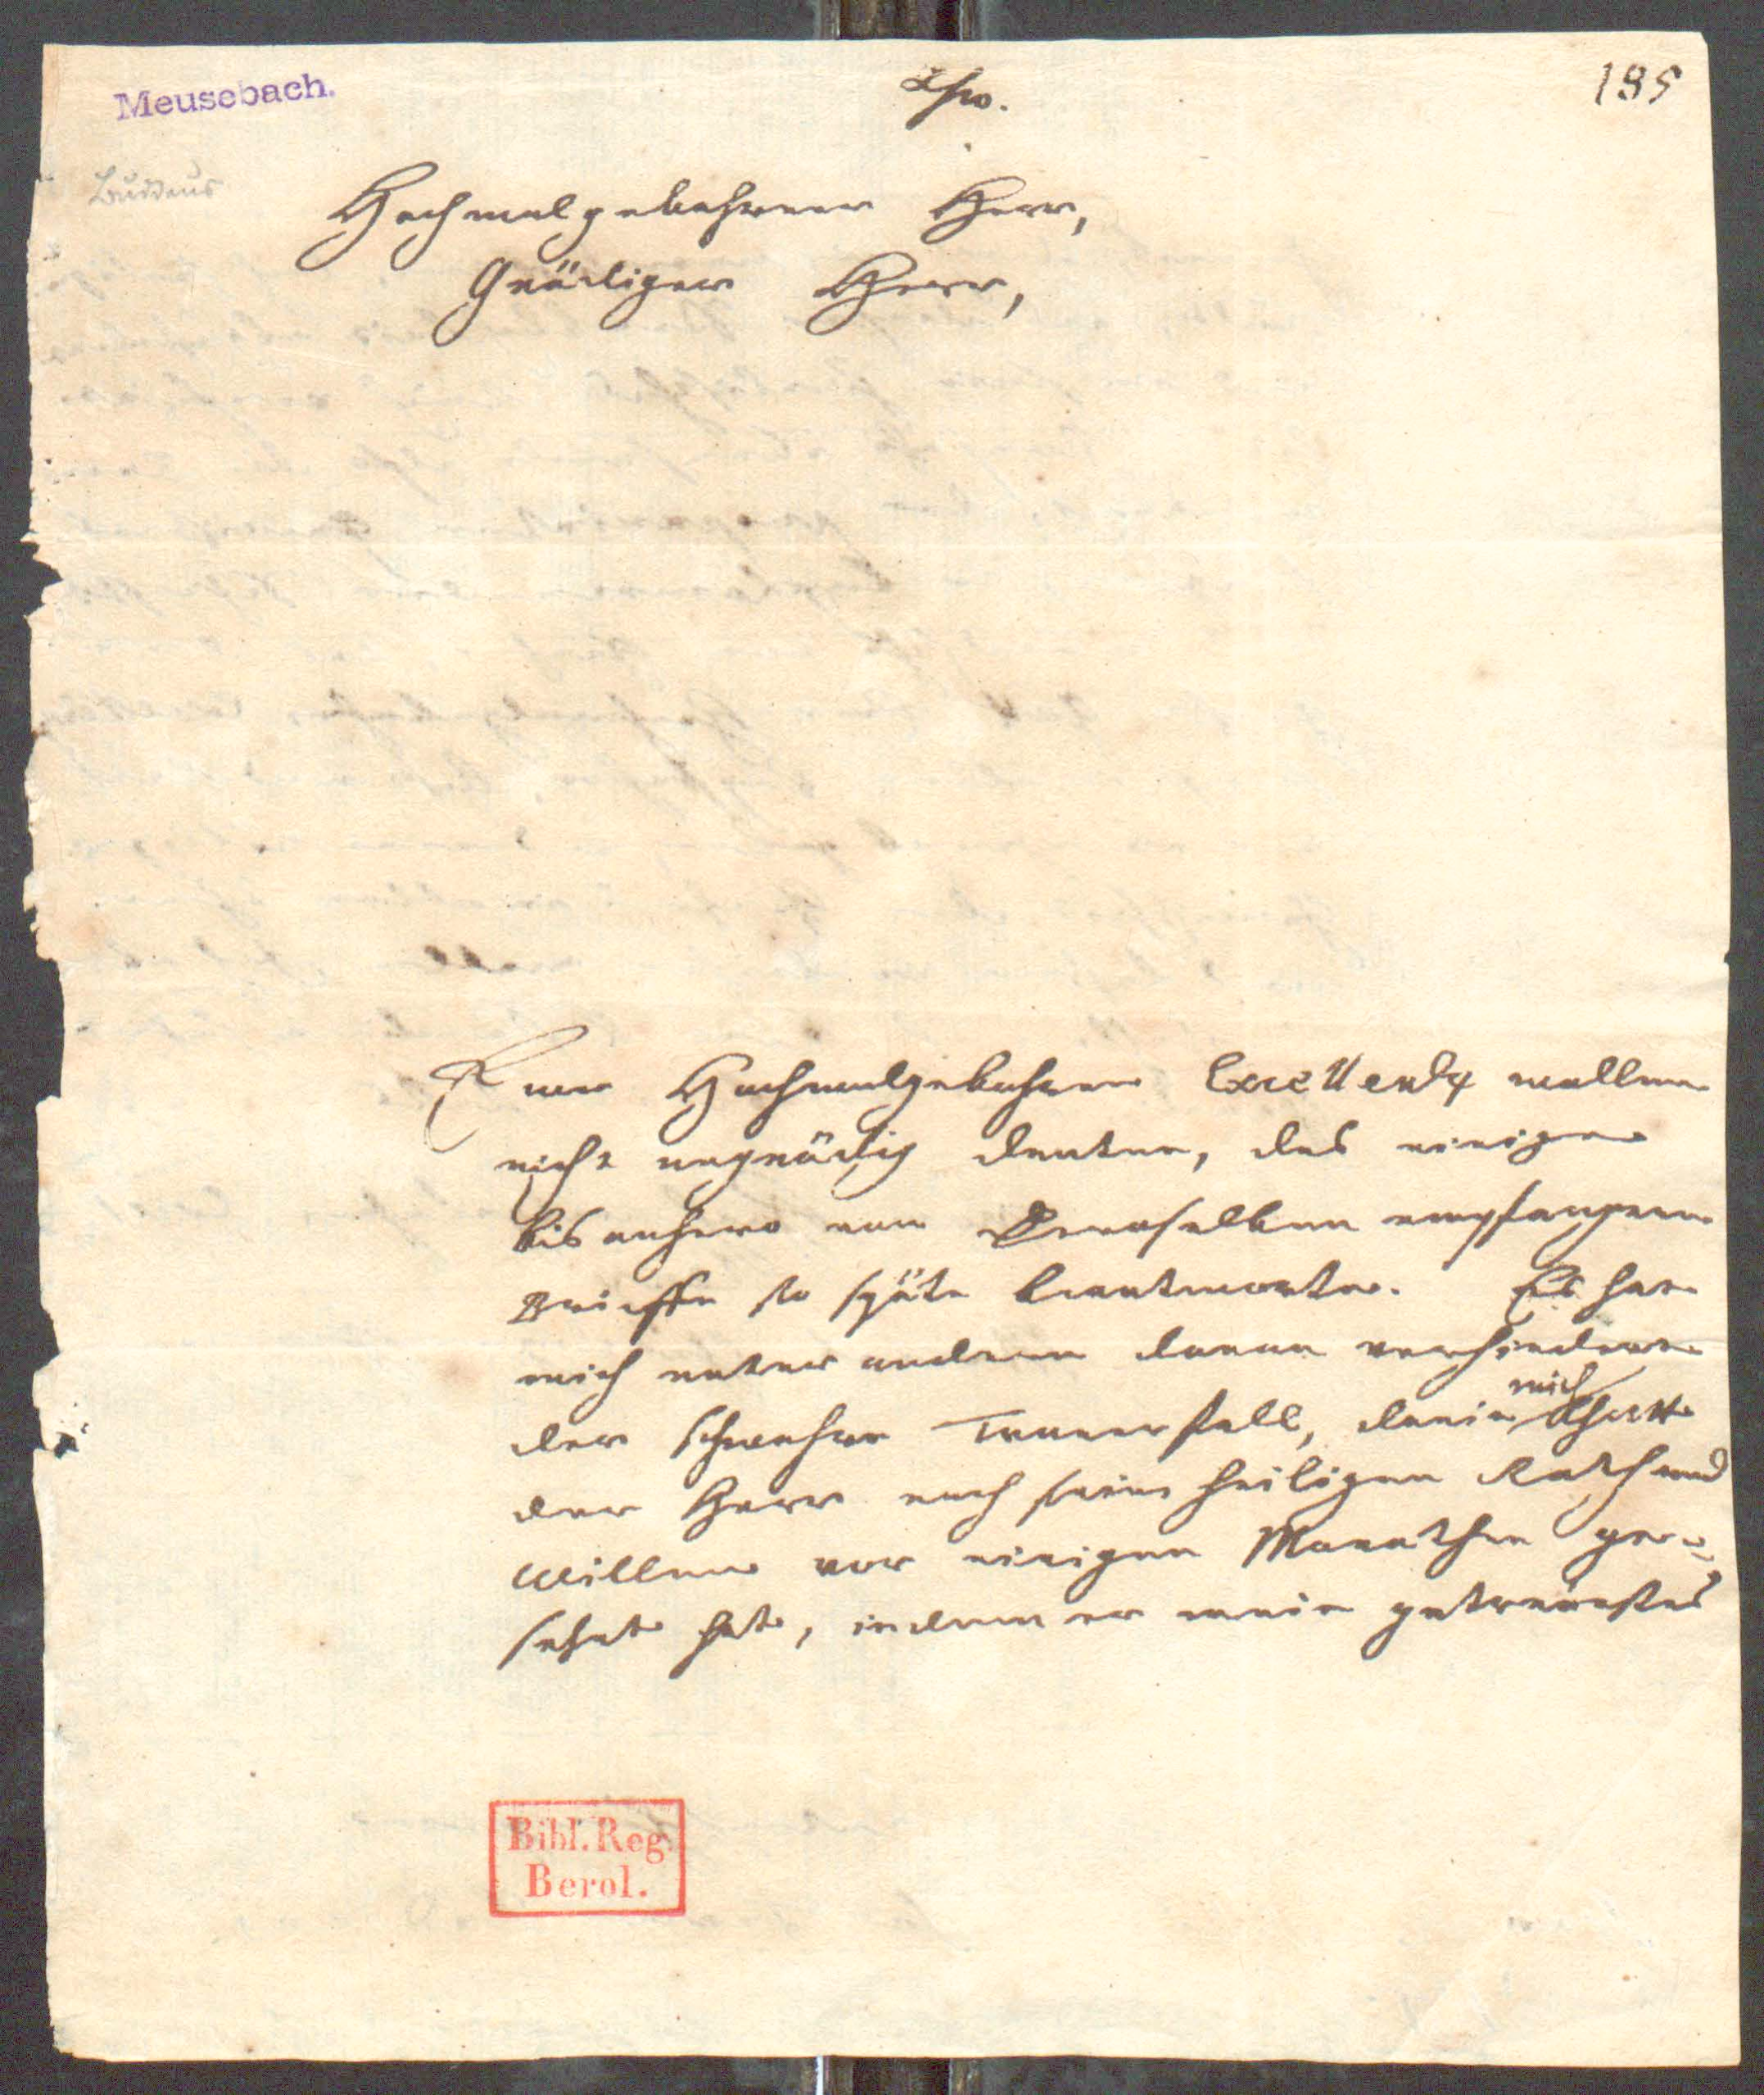 Meusebach.
185
Buddeus
Hochwolgebohrner Herr,
Gnädiger Herr,
Euer Hochwolgebohrne Excellentz wollen
nicht ungnädig deuten, das einige
bishanhero von Denenselben empfangene
Brieffe so späte beantworte. Es hat
mich unter andern daran verhindert
der schwehre Trauerfall, darin mich
der Herr nach seinen heiligen Rath und
willen vor einigen Monathen ge-
setzet hat, indem er mein getreuestes
Bibl. Reg.
Berol.